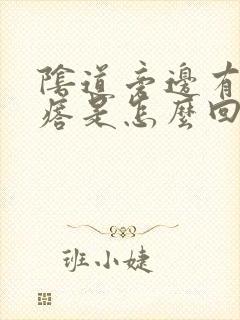 陰道旁邊有
痞是怎麼回
班小婕